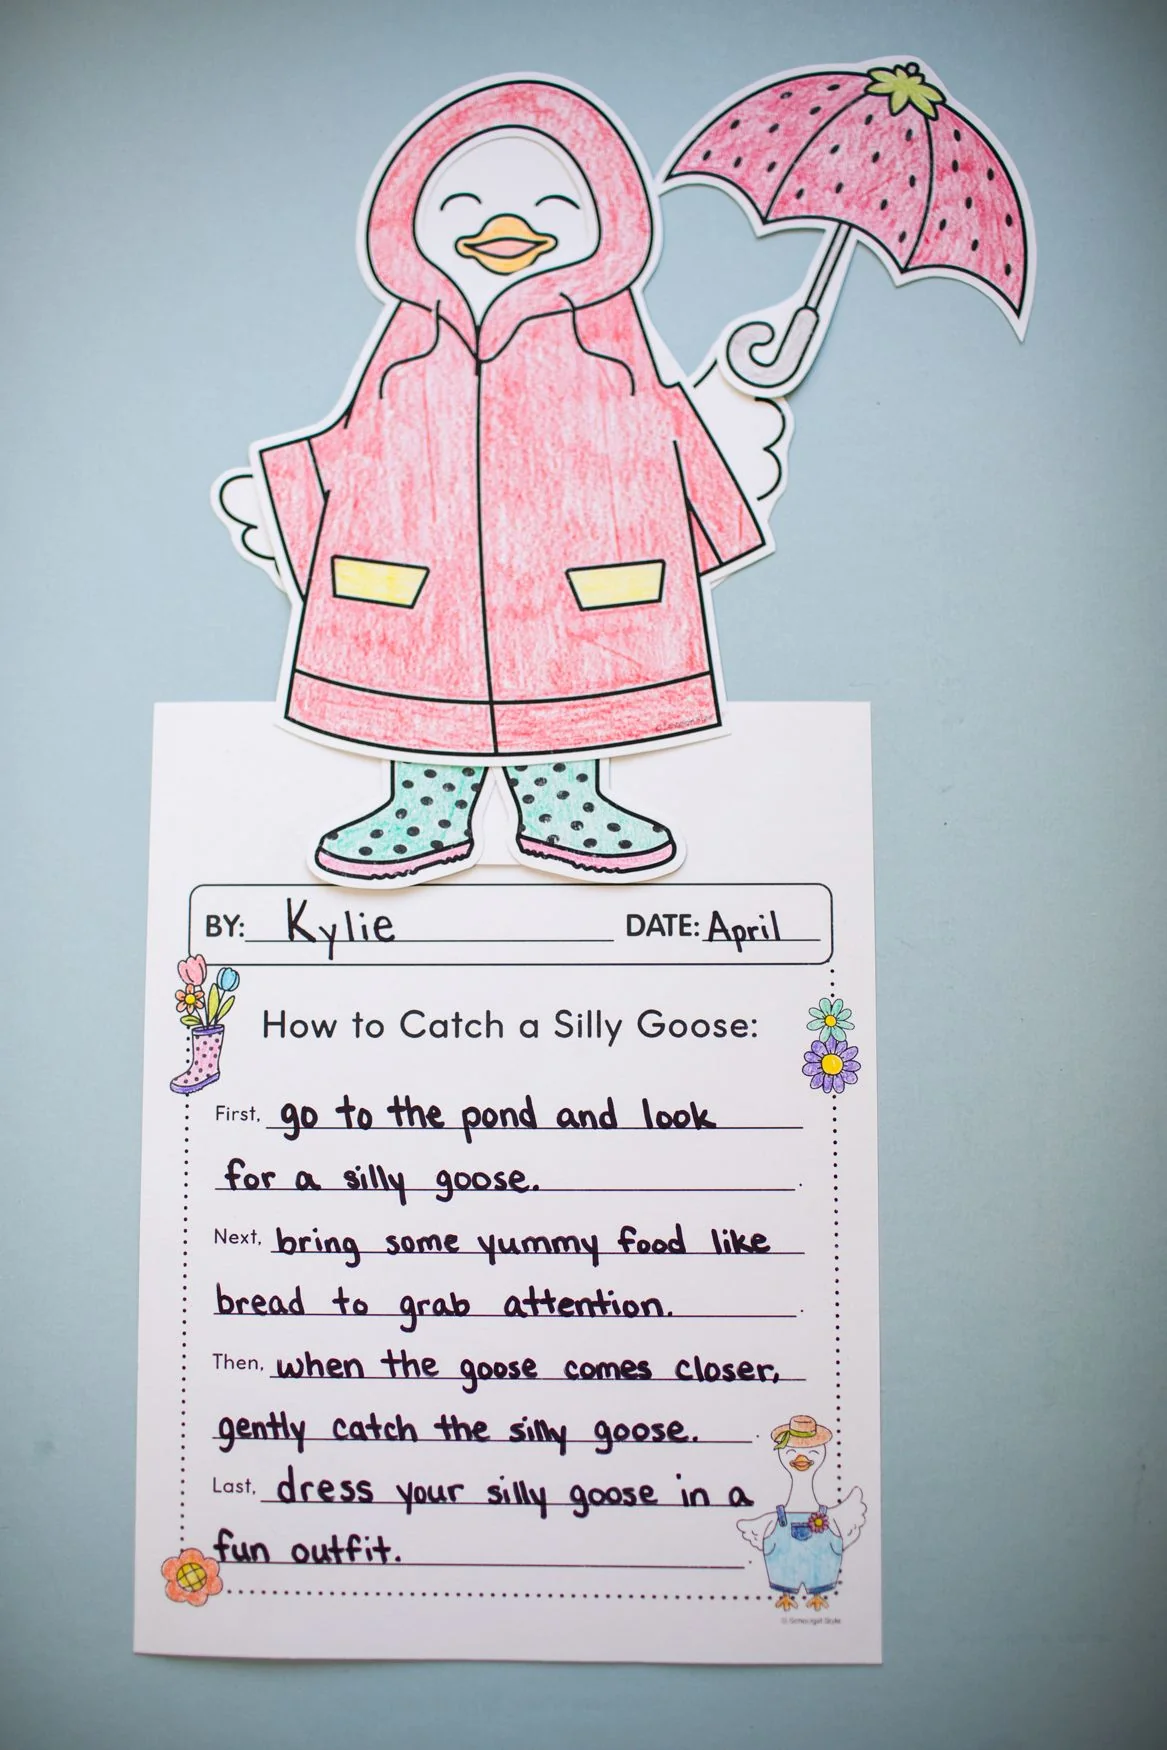 BY: Kylie DATE: April
How to Catch a Silly Goose:
First, go to the pond and look
for a silly goose. .
Next, bring some yummy food like
bread to grab attention. .
Then, when the goose comes closer,
gently catch the silly goose. .
Last, dress your silly goose in a
fun outfit. .
© Schoolgirl Style